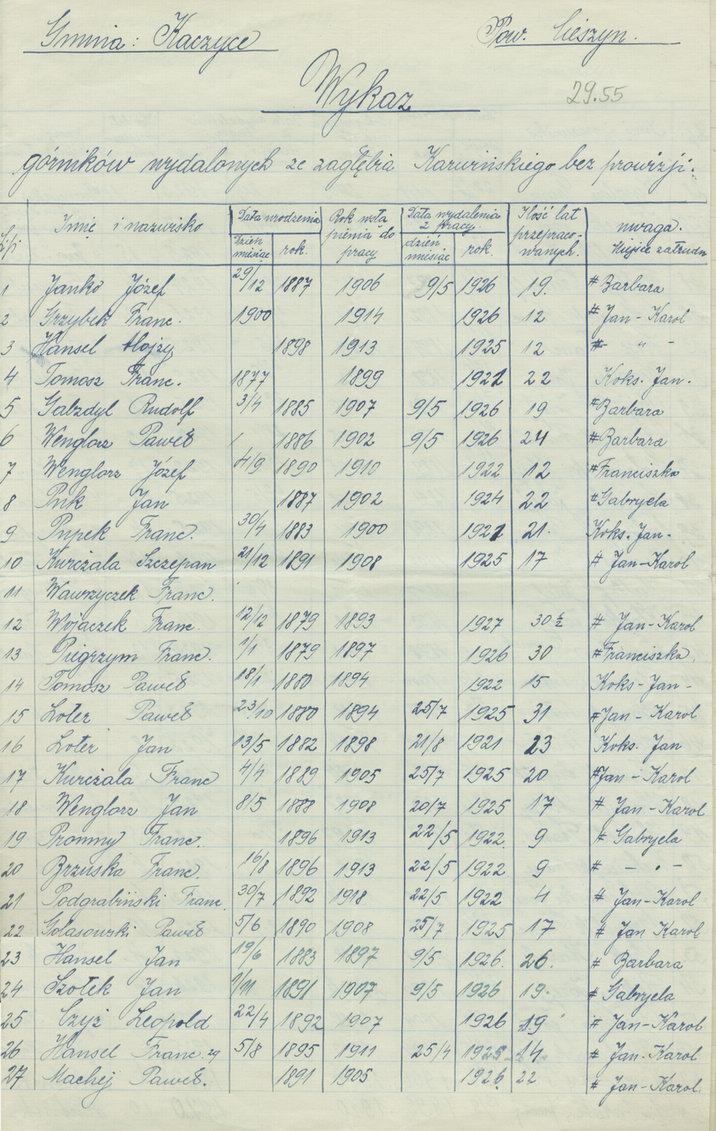 Gmina: Kaczyce Pow. Cieszyn.
Wykaz 29.55
górników wydalonych ze zagłębia Karwińskiego bez prowizji.
L/p Imię i nazwisko Data urodzenia dzień miesiąc rok. Rok wstąpienia do pracy Data wydalenia z pracy dzień. miesiąc rok. Ilość lat przepracowanych. uwaga. Miejsce zatrudn
1 Janko Józef 29/12 1887 1906 9/5 1926 19. # Barbara
2 Grzybek Franc. 1900 1914 1926 12 # Jan-Karol
3 Hansel Alojzy 1898 1913 1925 12 # - " -
4 Tomosz Franc. 1877 1899 1921 22 Koks. Jan.
5 Gabzdyl Rudolf 3/4 1885 1907 9/5 1926 19 # Barbara
6 Wenglorz Paweł 1886 1902 9/5 1926 24 # Barbara
7 Wenglorz Józef 4/9 1890 1910 1922 12 # Franciszka
8 Jan 1887 1902 1924 22 # Gabryela
9 Pupek Franc. 30/4 1883 1900 1921 21. Koks. Jan.
10 Kurczala Szczepan 21/12 1891 1908 1925 17 # Jan-Karol
11 Wawrzyczek Franc.
12 Wojaczek Franc. 12/12 1879 1893 1927 30 ½ # Jan-Karol
13 Piegrzym Franc. 1/1 1879 1897 1926 30 # Franciszka
14 Tomosz Paweł 18/1 1880 1894 1922 15 Koks-Jan-
15 Loter Paweł 23/10 1880 1894 25/7 1925 31 # Jan-Karol
16 Loter Jan 13/5 1882 1898 21/8 1921 23 Koks. Jan
17 Kurczala Franc 4/4 1889 1905 25/7 1925 20 # Jan-Karol
18 Wenglorz Jan 8/5 1888 1908 20/7 1925 17 # Jan-Karol
19 Promny Franc. 1896 1913 22/5 1922. 9 # Gabryela
20 Brzuska Franc. 16/8 1896 1913 22/5 1922 9 # - " -
21 Podgrabiński Franc. 30/7 1892 1918 22/5 1922 4 # Jan-Karol
22 Golasowski Paweł 5/6 1890 1908 25/7 1925 17 # Jan Karol
23 Hansel Jan 19/6 1883 1897 9/5 1926. 26. # Barbara
24 Szołek Jan 1/11 1891 1907 9/5 1926 19. # Gabryela
25 Czyż Leopold 22/4 1892 1907 1926 19 # Jan-Karol
26 Hansel Franc. 29 5/8 1895 1911 25/4 1925 14. # Jan-Karol
27 Machej Paweł. 1891 1905 1926. 22 # Jan-Karol